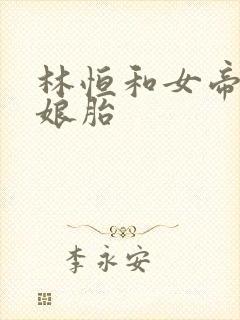 林恒和女帝
娘胎
李永安